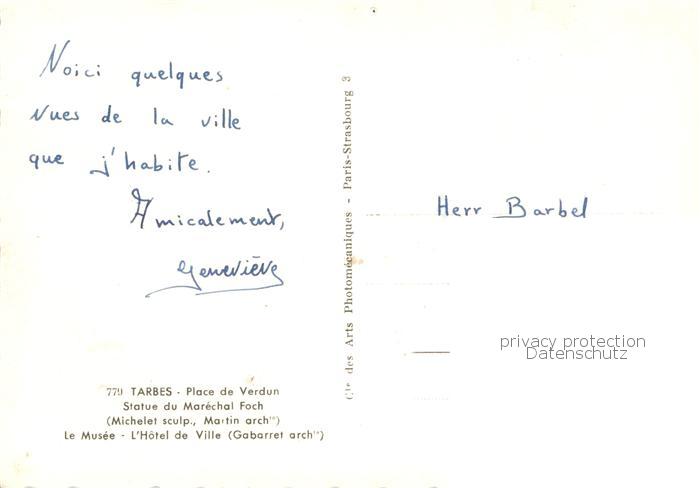 Voici quelques
vues de la ville
que j'habite.
Amicalement,
Geneviève
779 TARBES - Place de Verdun
Statue du Maréchal Foch
(Michelet sculp., Martin archte)
Le Musée - L'Hôtel de Ville (Gabarret archte)
Cie des Arts Photomécaniques - Paris-Strasbourg 3
Herr Barbel
privacy protection
Datenschutz